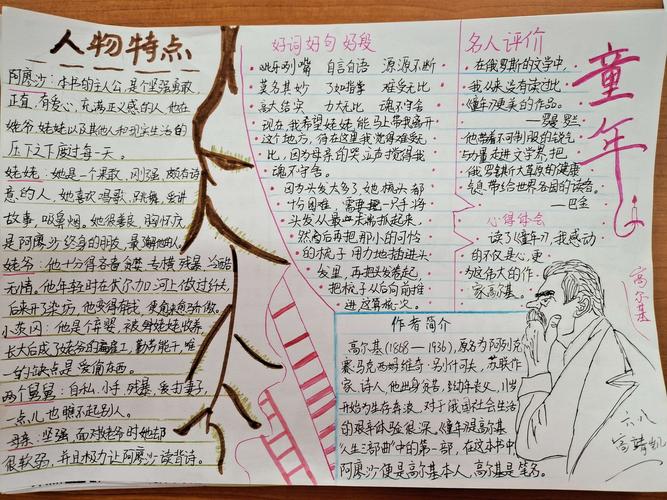 人物特点
阿廖沙：本书的主人公，是个坚强勇敢，
正直，有爱心，充满正义感的人，他在
姥爷、姥姥以及其他人和现实生活的
压力之下度过每一天。
姥姥：她是一个果敢，刚强，颇有诗
意的人，她喜欢唱歌，跳舞，爱讲
故事，吸鼻烟。她很善良，胸怀广
是阿廖沙终身的朋友，最了解他的人。
姥爷：他十分得吝啬、贪婪、专横、残暴、冷酷
无情，他年轻时在伏尔加河上做过纤夫，
后来开了染坊，他变得有钱
小茨冈：他是个弃婴，被姥姥收养，
长大后成了姥爷的工，勤劳能干，唯
一的缺点是爱偷东西。
两个舅舅：自私、小手、残暴、爱打妻子，
一点儿也瞧不起别人。
母亲：坚强，面对姥爷时她却
很软弱，并且极力让阿廖沙读背诗。
好词好句好段
龇牙咧嘴 自言自语 源源不断
莫名其妙 了如指掌 难受无比
高大结实 力大无比 魂不守舍
现在，我希望姥姥能马上带我离开
这个地方，待在这里我觉得难受无
比，因为母亲的哭声搅得我
魂不守舍。
因为头发太多了，她梳头都
十分困难，需要把一只手将
头发从最末端抓起来，
然后再把那小的可怜
的梳子用力地插进头
发里，再把头发卷起，
把梳子从后向前推
进这算梳一次。
名人评价
在俄罗斯的文学中，
我从来没有读过比
《童年》更美的作品。
——罗曼·罗兰
他带着不可制服的锐气
与力量走进文学界，把
俄罗斯大草原的健康
气息带给世界各国的读者。
——巴金
心得体会
读了《童年》，我感动
的不仅是心，更
为这伟大的作
家高尔基。
童年
高尔基
作者简介
高尔基（1868—1936），原名为阿列克
赛·马克西姆维奇·别什可夫，苏联作
家，诗人，他出身贫苦，幼年丧父，11岁
开始为生存奔波，对于俄国社会生活
的艰辛体验很深，《童年》是高尔基
“人生三部曲”中的第一部，在这本书中，
阿廖沙便是高尔基本人，高尔基是笔名。
六八
高靖凯